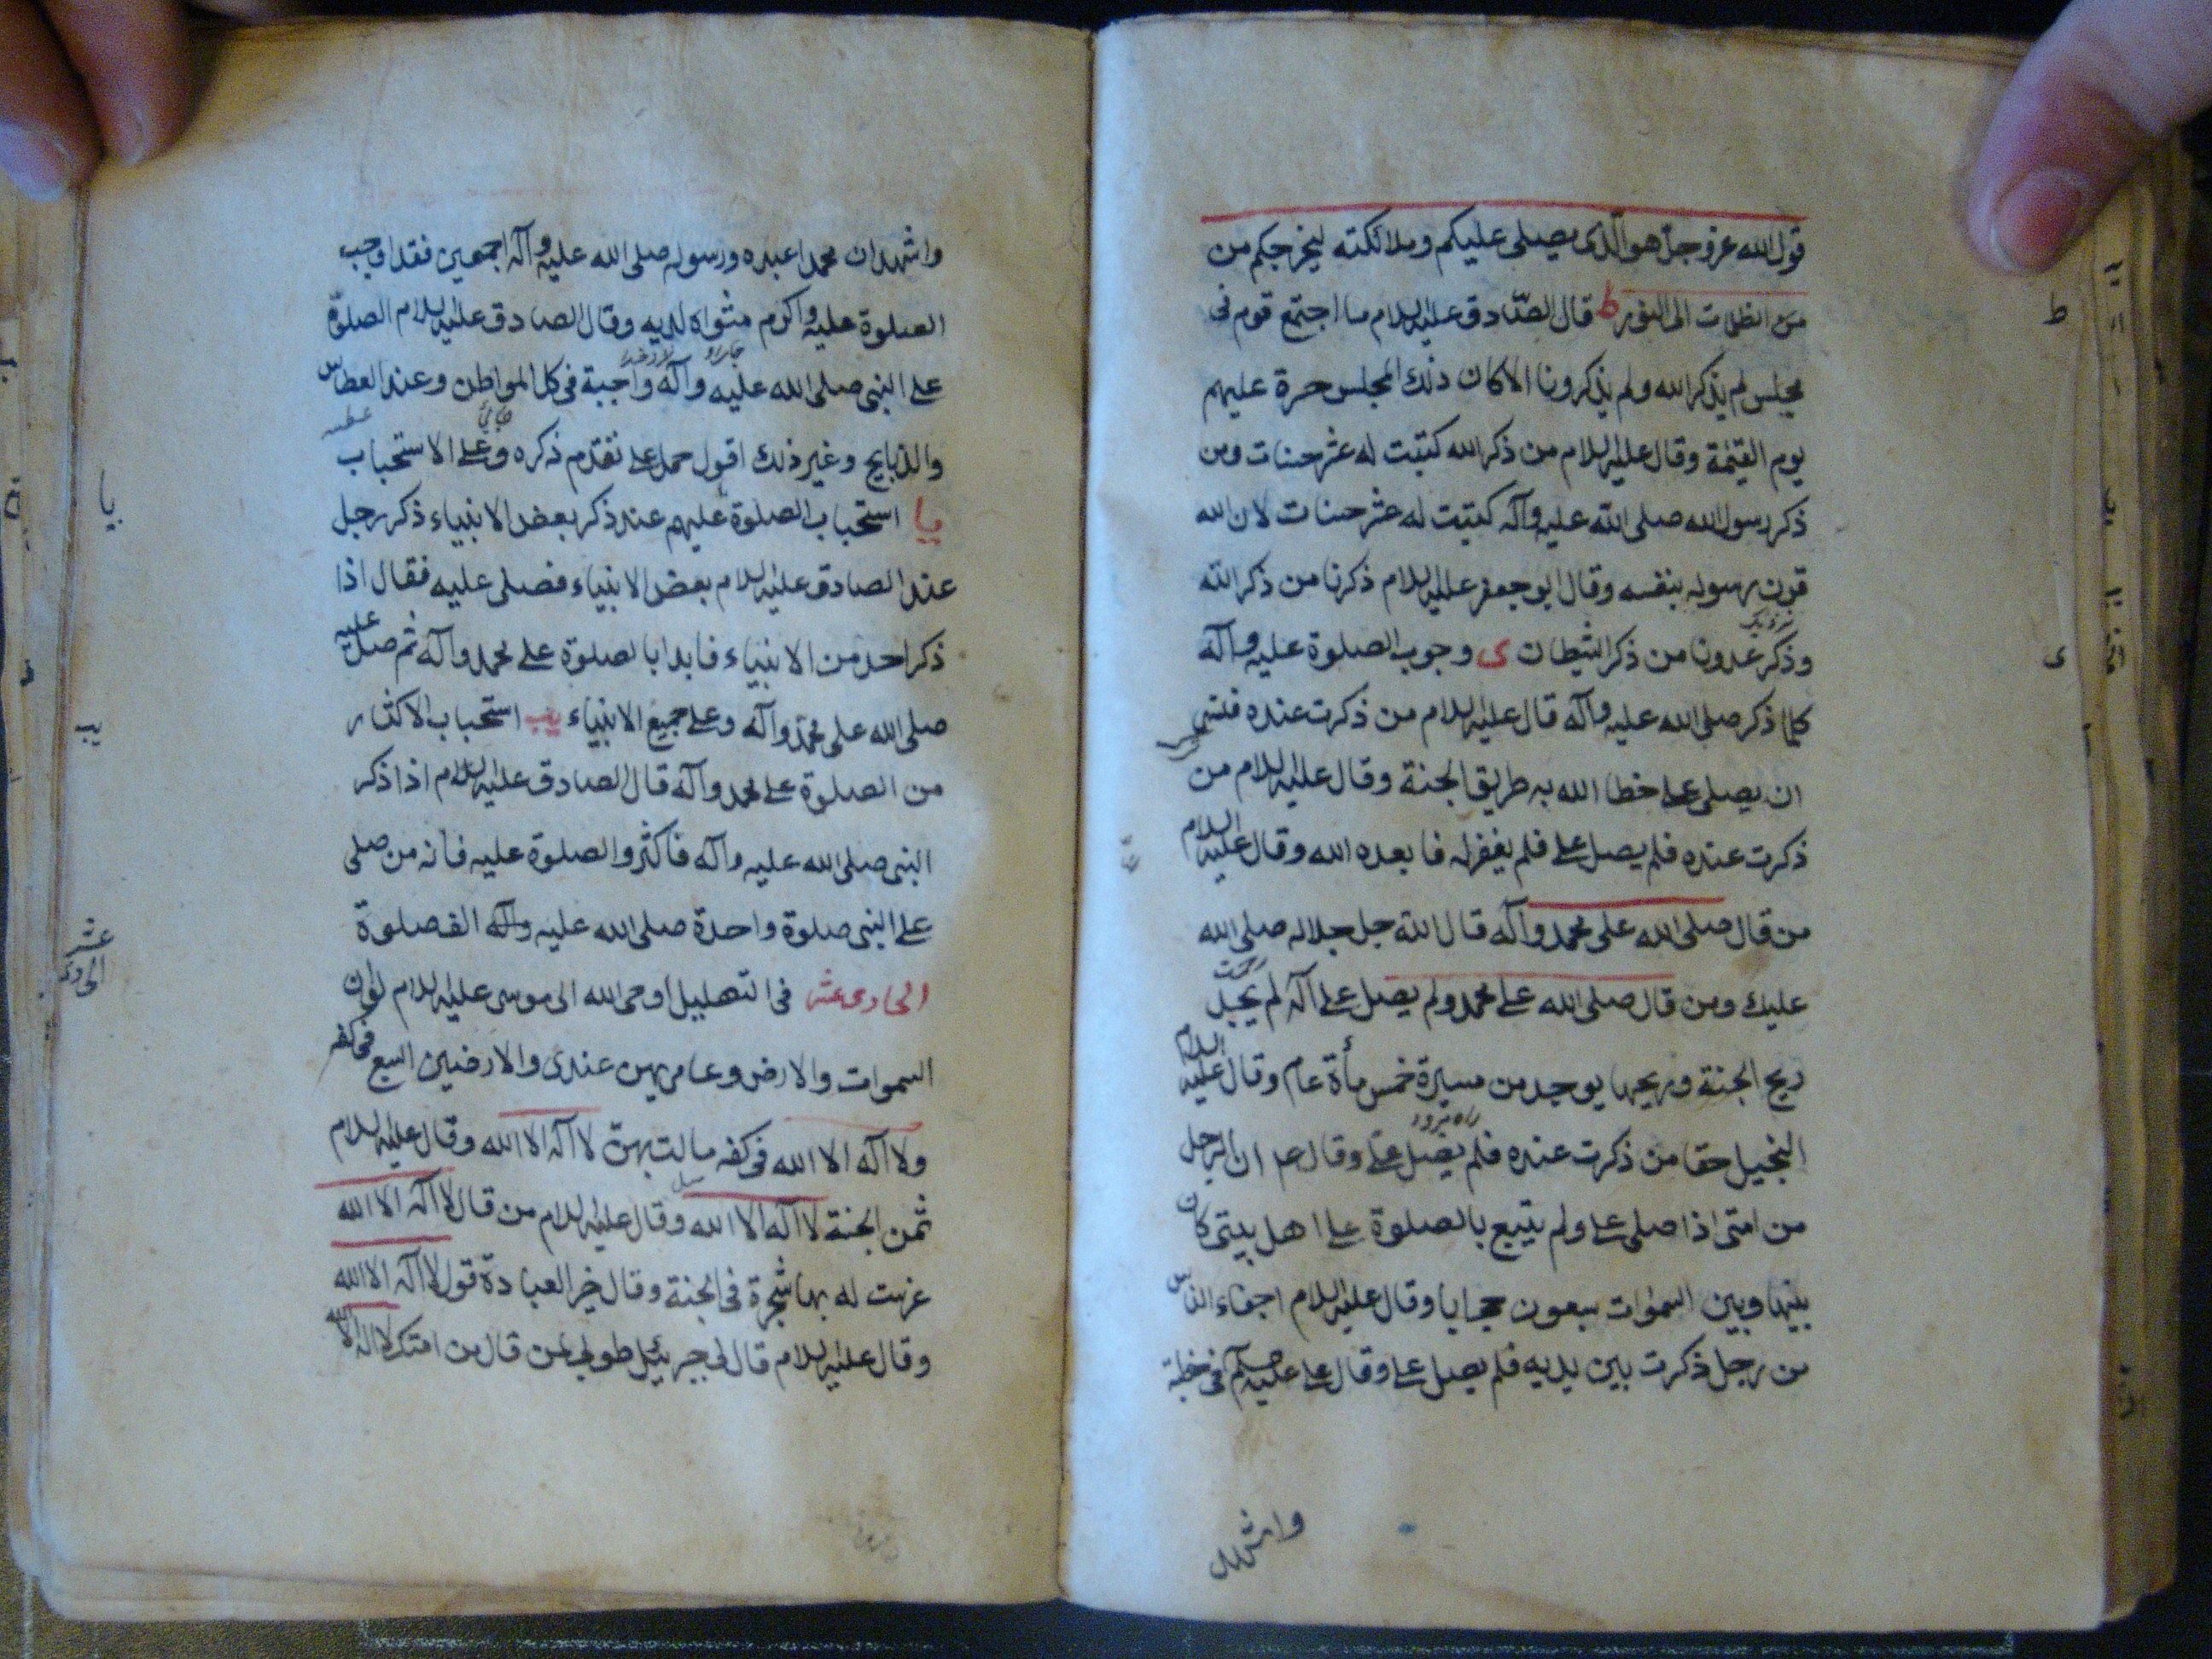 قول الله عز وجل هو الذی یصلی علیکم وملائکته لیخرجکم من
من الظلمات الی النور ط قال الصادق علیه السلام ما اجتمع قوم فی
مجلس لم یذکر الله ولم یذکرونا الا کان ذلک المجلس حسرة علیهم
یوم القیمة وقال علیه السلام من ذکر الله کتبت له عشر حسنات ومن
ذکر رسول الله صلی الله علیه وآله کتبت له عشر حسنات لان الله
قرن رسوله بنفسه وقال ابو جعفر علیه السلام ذکرنا من ذکر الله
وذکر عدونا من ذکر الشیطان ی وجوب الصلوة علیه وآله
کلما ذکر صلی الله علیه وآله قال علیه السلام من ذکرت عنده فنسی
ان یصلی علی خطا الله به طریق الجنة وقال علیه السلام من
ذکرت عنده فلم یصل علی فلم یغفر له فابعده الله وقال علیه السلام
من قال صلی الله علی محمد وآله قال الله جل جلاله صلی الله
علیک ومن قال صلی الله علی محمد ولم یصل علی آله لم یجد
ریح الجنة وریحها یوجد من مسیرة خمس مأة عام وقال علیه السلام
البخیل حقا من ذکرت عنده فلم یصل علی وقال عم ان الرجل
من امتی اذا صلی علی ولم یتبع بالصلوة علی اهل بیتی کان
بینها وبین السموات سبعون حجابا وقال علیه السلام اجفاء الناس
من رجل ذکرت بین یدیه فلم یصل علی وقال علی علیه السلم فی خطبة
واشهد
ط
ی
واشهد ان محمدا عبده ورسوله صلی الله علیه وآله اجمعین فقد اوجب
الصلوة علیه واکرم مثواه لدیه وقال الصادق علیه السلام الصلوة
علی النبی صلی الله علیه وآله واجبة فی کل المواطن وعند العطاس
والذبایح وغیر ذلک اقول حمل علی تقدم ذکره وعلی الاستحباب
یا استحباب الصلوة علیهم عند ذکر بعض الانبیاء ذکر رجل
عند الصادق علیه السلام بعض الانبیاء فصلی علیه فقال اذا
ذکر احد من الانبیاء فابدا بالصلوة علی محمد وآله ثم صل علیه
صلی الله علی محمد وآله وعلی جمیع الانبیاء یب استحباب الاکثار
من الصلوة علی محمد وآله قال الصادق علیه السلام اذا ذکر
النبی صلی الله علیه وآله فاکثروا الصلوة علیه فانه من صلی
علی النبی صلوة واحدة صلی الله علیه وآله الف صلوة
الحادی عشر فی التهلیل اوحی الله الی موسی علیه السلام لو ان
السموات والارض وعامریهن عندی والارضین السبع فی کفه
ولا آله الا الله فی کفه مالت بهن لا آله الا الله وقال علیه السلام
ثمن الجنة لا آله الا الله وقال علیه السلام من قال لا آله الا الله
غرست له بها شجرة فی الجنة وقال خیر العبادة قول لا آله الا الله
وقال علیه السلام قال لی جبرئیل طوبی لمن قال من امتک لا اله الا الله
یا
یب
الحادی عشر